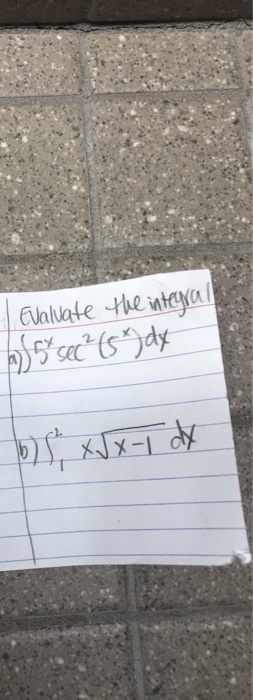 Evaluate the integral
a) ∫ 5ˣ sec² (5ˣ) dx
b) ∫₁² x√(x-1) dx